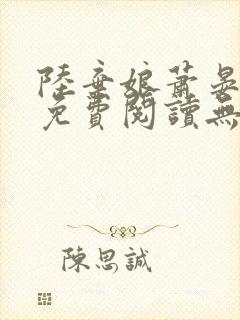 陸棄娘蕭晏
免費閱讀無
陳思誠